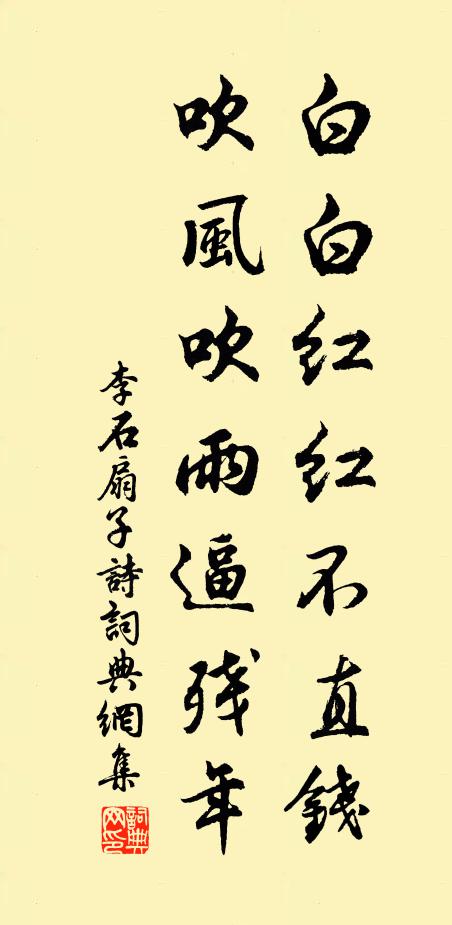 白白红红不直錢
吹風吹雨逼残年
李石扇子詩詞典網集
詞典网印